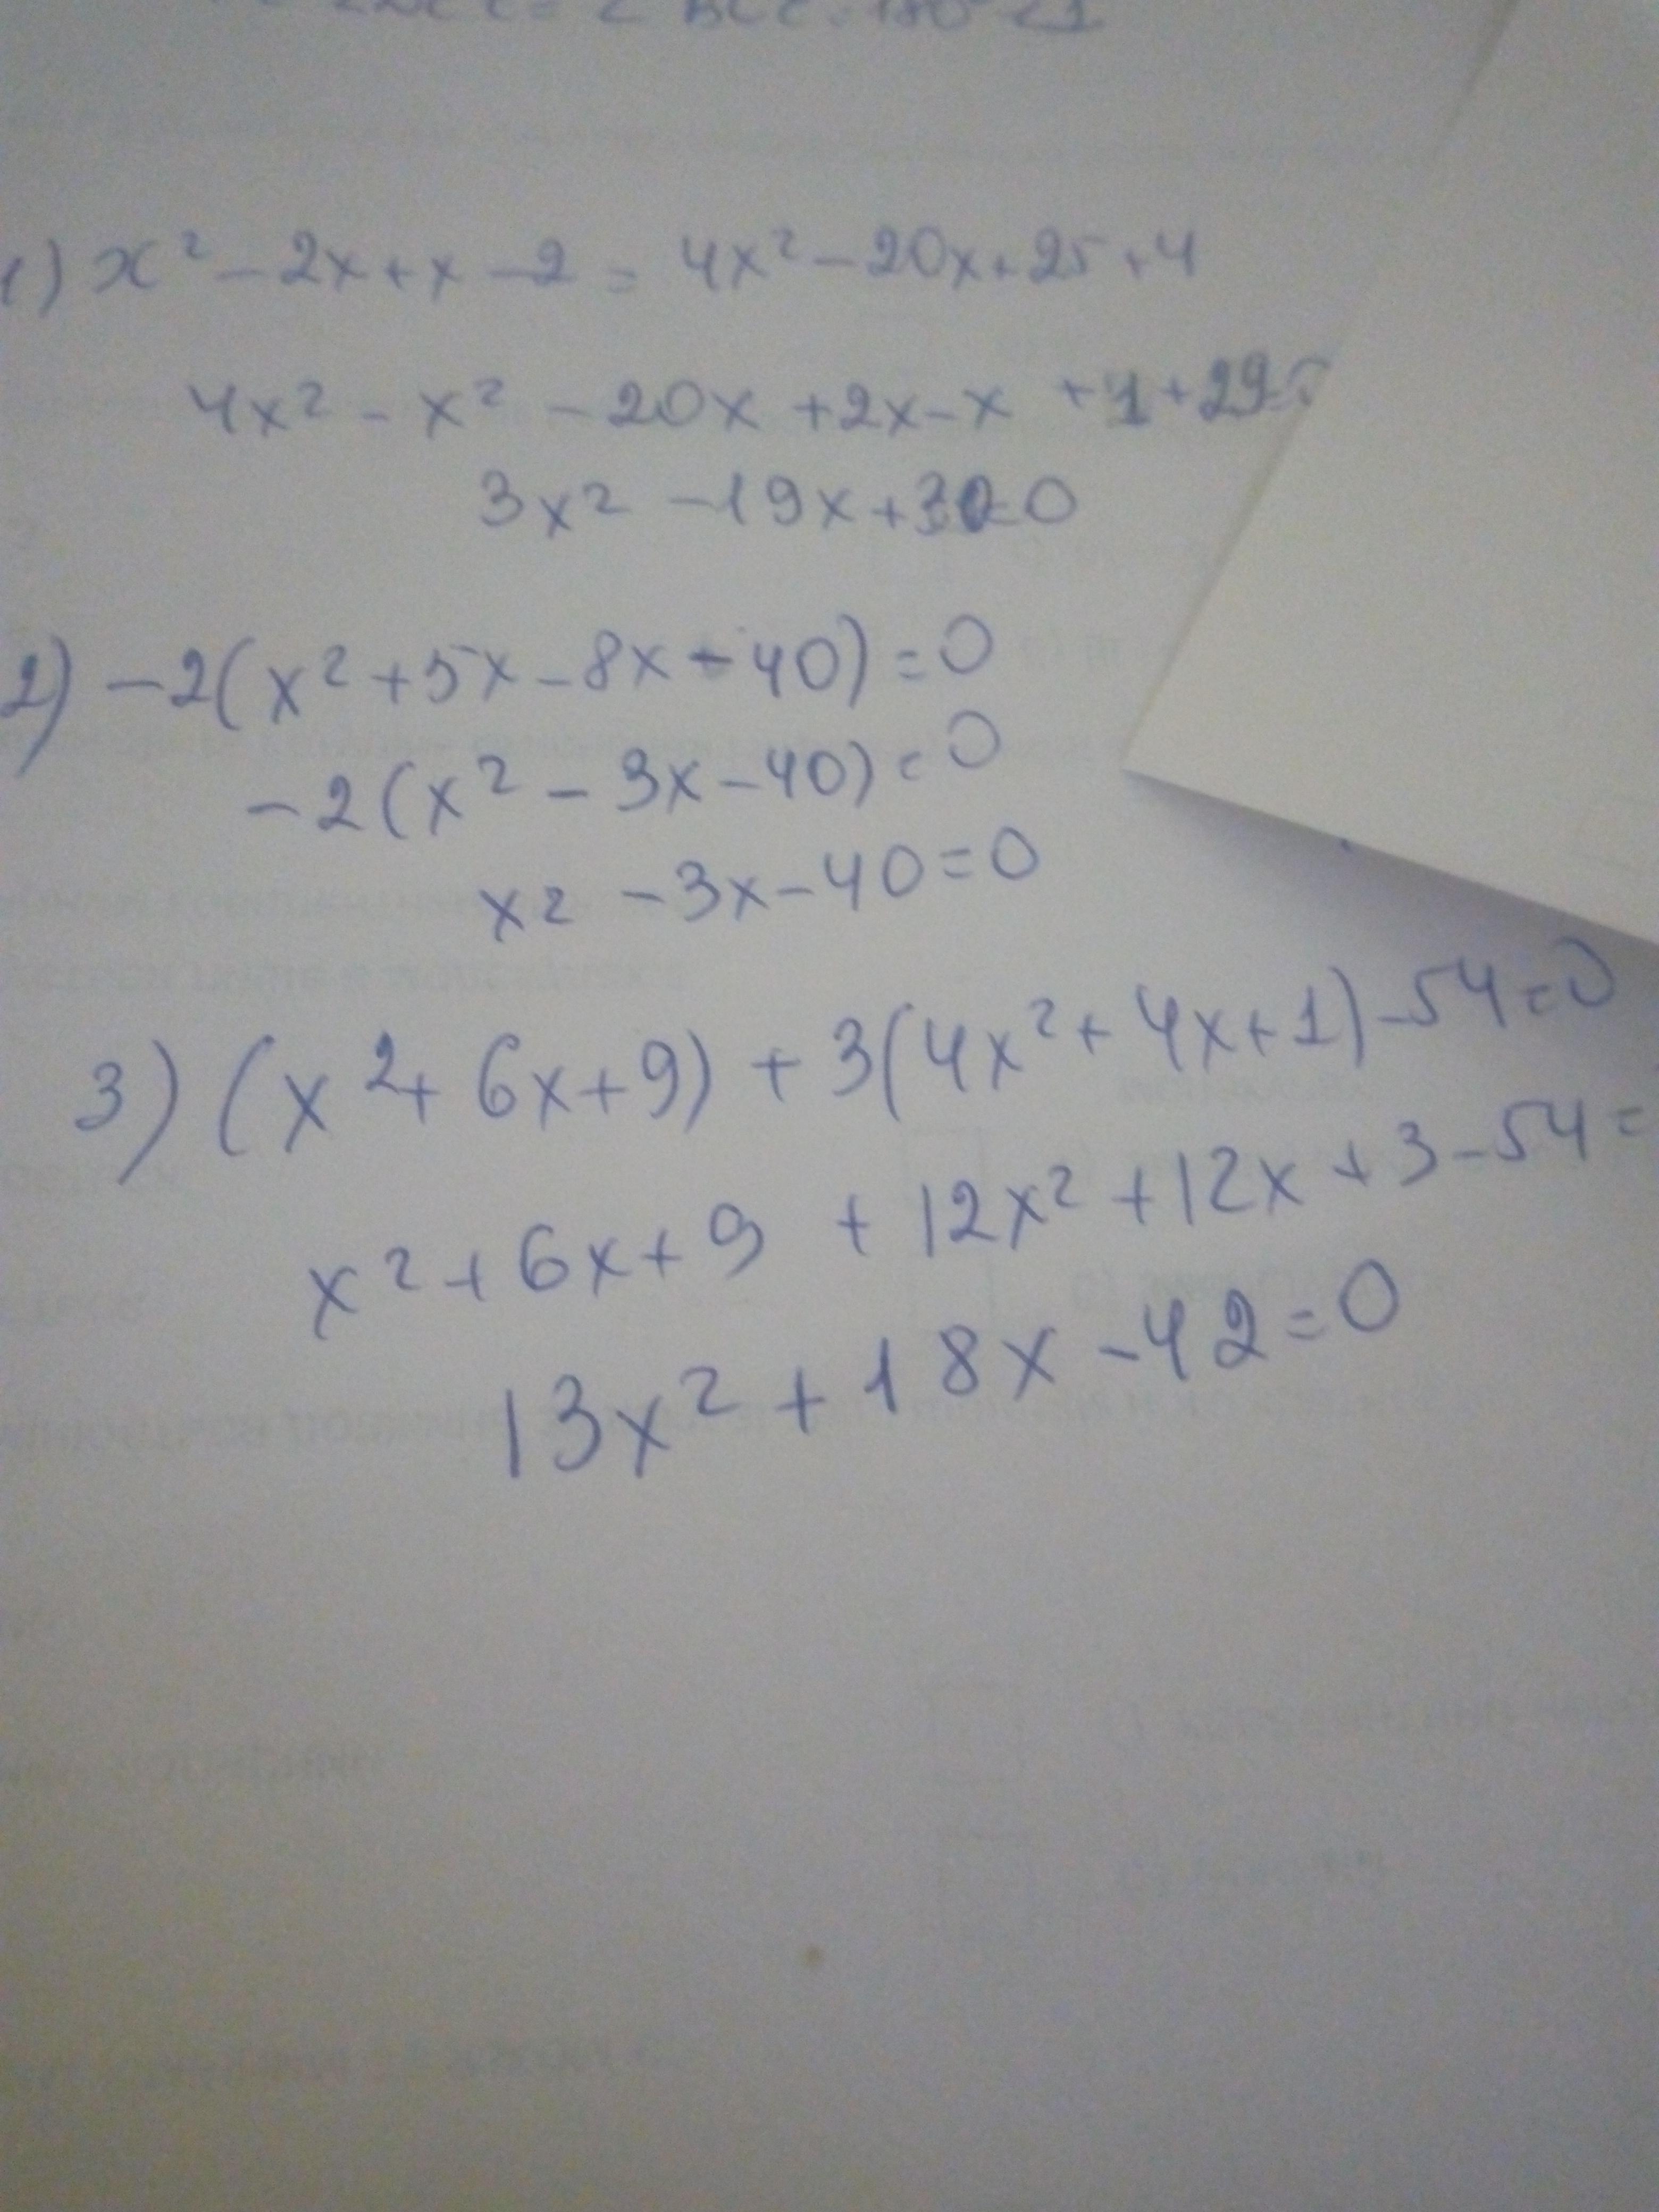 1) x² - 2x + x - 2 = 4x² - 20x + 25 + 4
4x² - x² - 20x + 2x - x + 1 + 29 =
3x² - 19x + 30 = 0
2) -2(x² + 5x - 8x - 40) = 0
-2(x² - 3x - 40) = 0
x² - 3x - 40 = 0
3) (x² + 6x + 9) + 3(4x² + 4x + 1) - 54 = 0
x² + 6x + 9 + 12x² + 12x + 3 - 54 =
13x² + 18x - 42 = 0